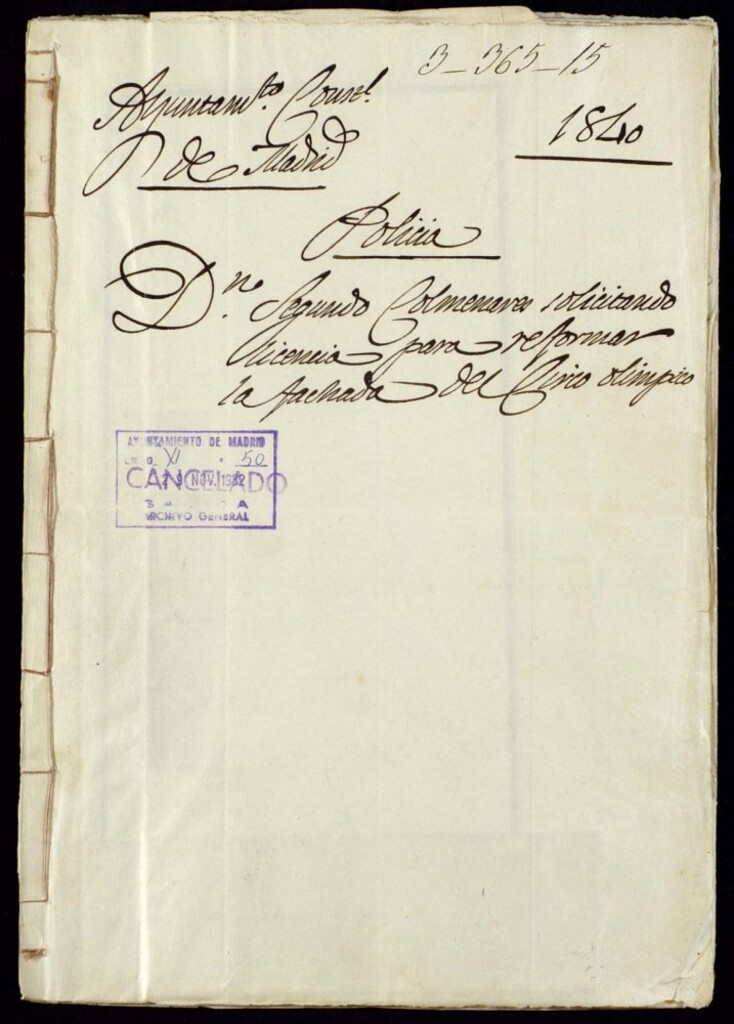 3-365-15
Ayuntamto. Constl.
de Madrid
1840
Policia
Dn. Segundo Colmenares solicitando
licencia para reformar
la fachada del Circo olimpico
AYUNTAMIENTO DE MADRID
XI 50
CANCELADO
NOV. 1982
ARCHIVO GENERAL